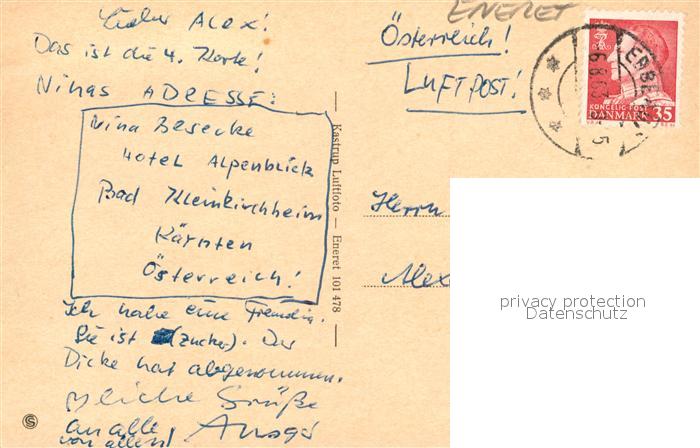 Lieber ALEX!
Das ist die 4. Karte!
NINAS ADRESSE:
Nina Besecke
HOTEL ALPENBLICK
Bad Kleinkirchheim
Kärnten
Österreich!
Ich habe eine Freundin.
Sie ist (Zucker). Der
Dicke hat abgenommen.
Grüße
an alle
von allen!
Kastrup Luftfoto — Eneret 101478
ENERET
Österreich!
LUFTPOST!
6.8.63
KONGELIG POST
DANMARK 35
Herrn
Alex
privacy protection
Datenschutz
S